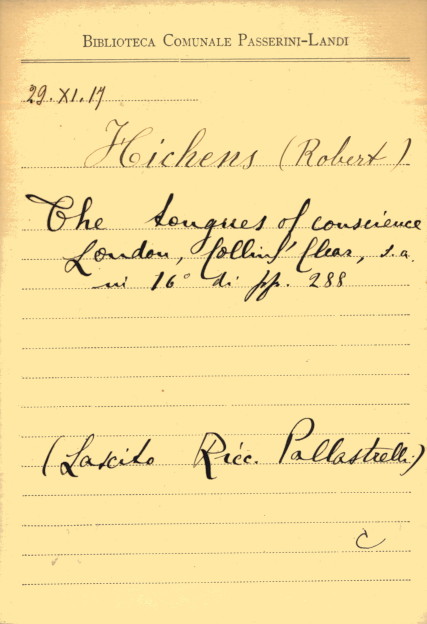 BIBLIOTECA COMUNALE PASSERINI-LANDI
29.XI.17
Hichens (Robert)
The tongues of conscience
London, Collins' Clear, s.a.
in 16° di pp. 288
(Lascito Ricc. Pallastrelli)
C